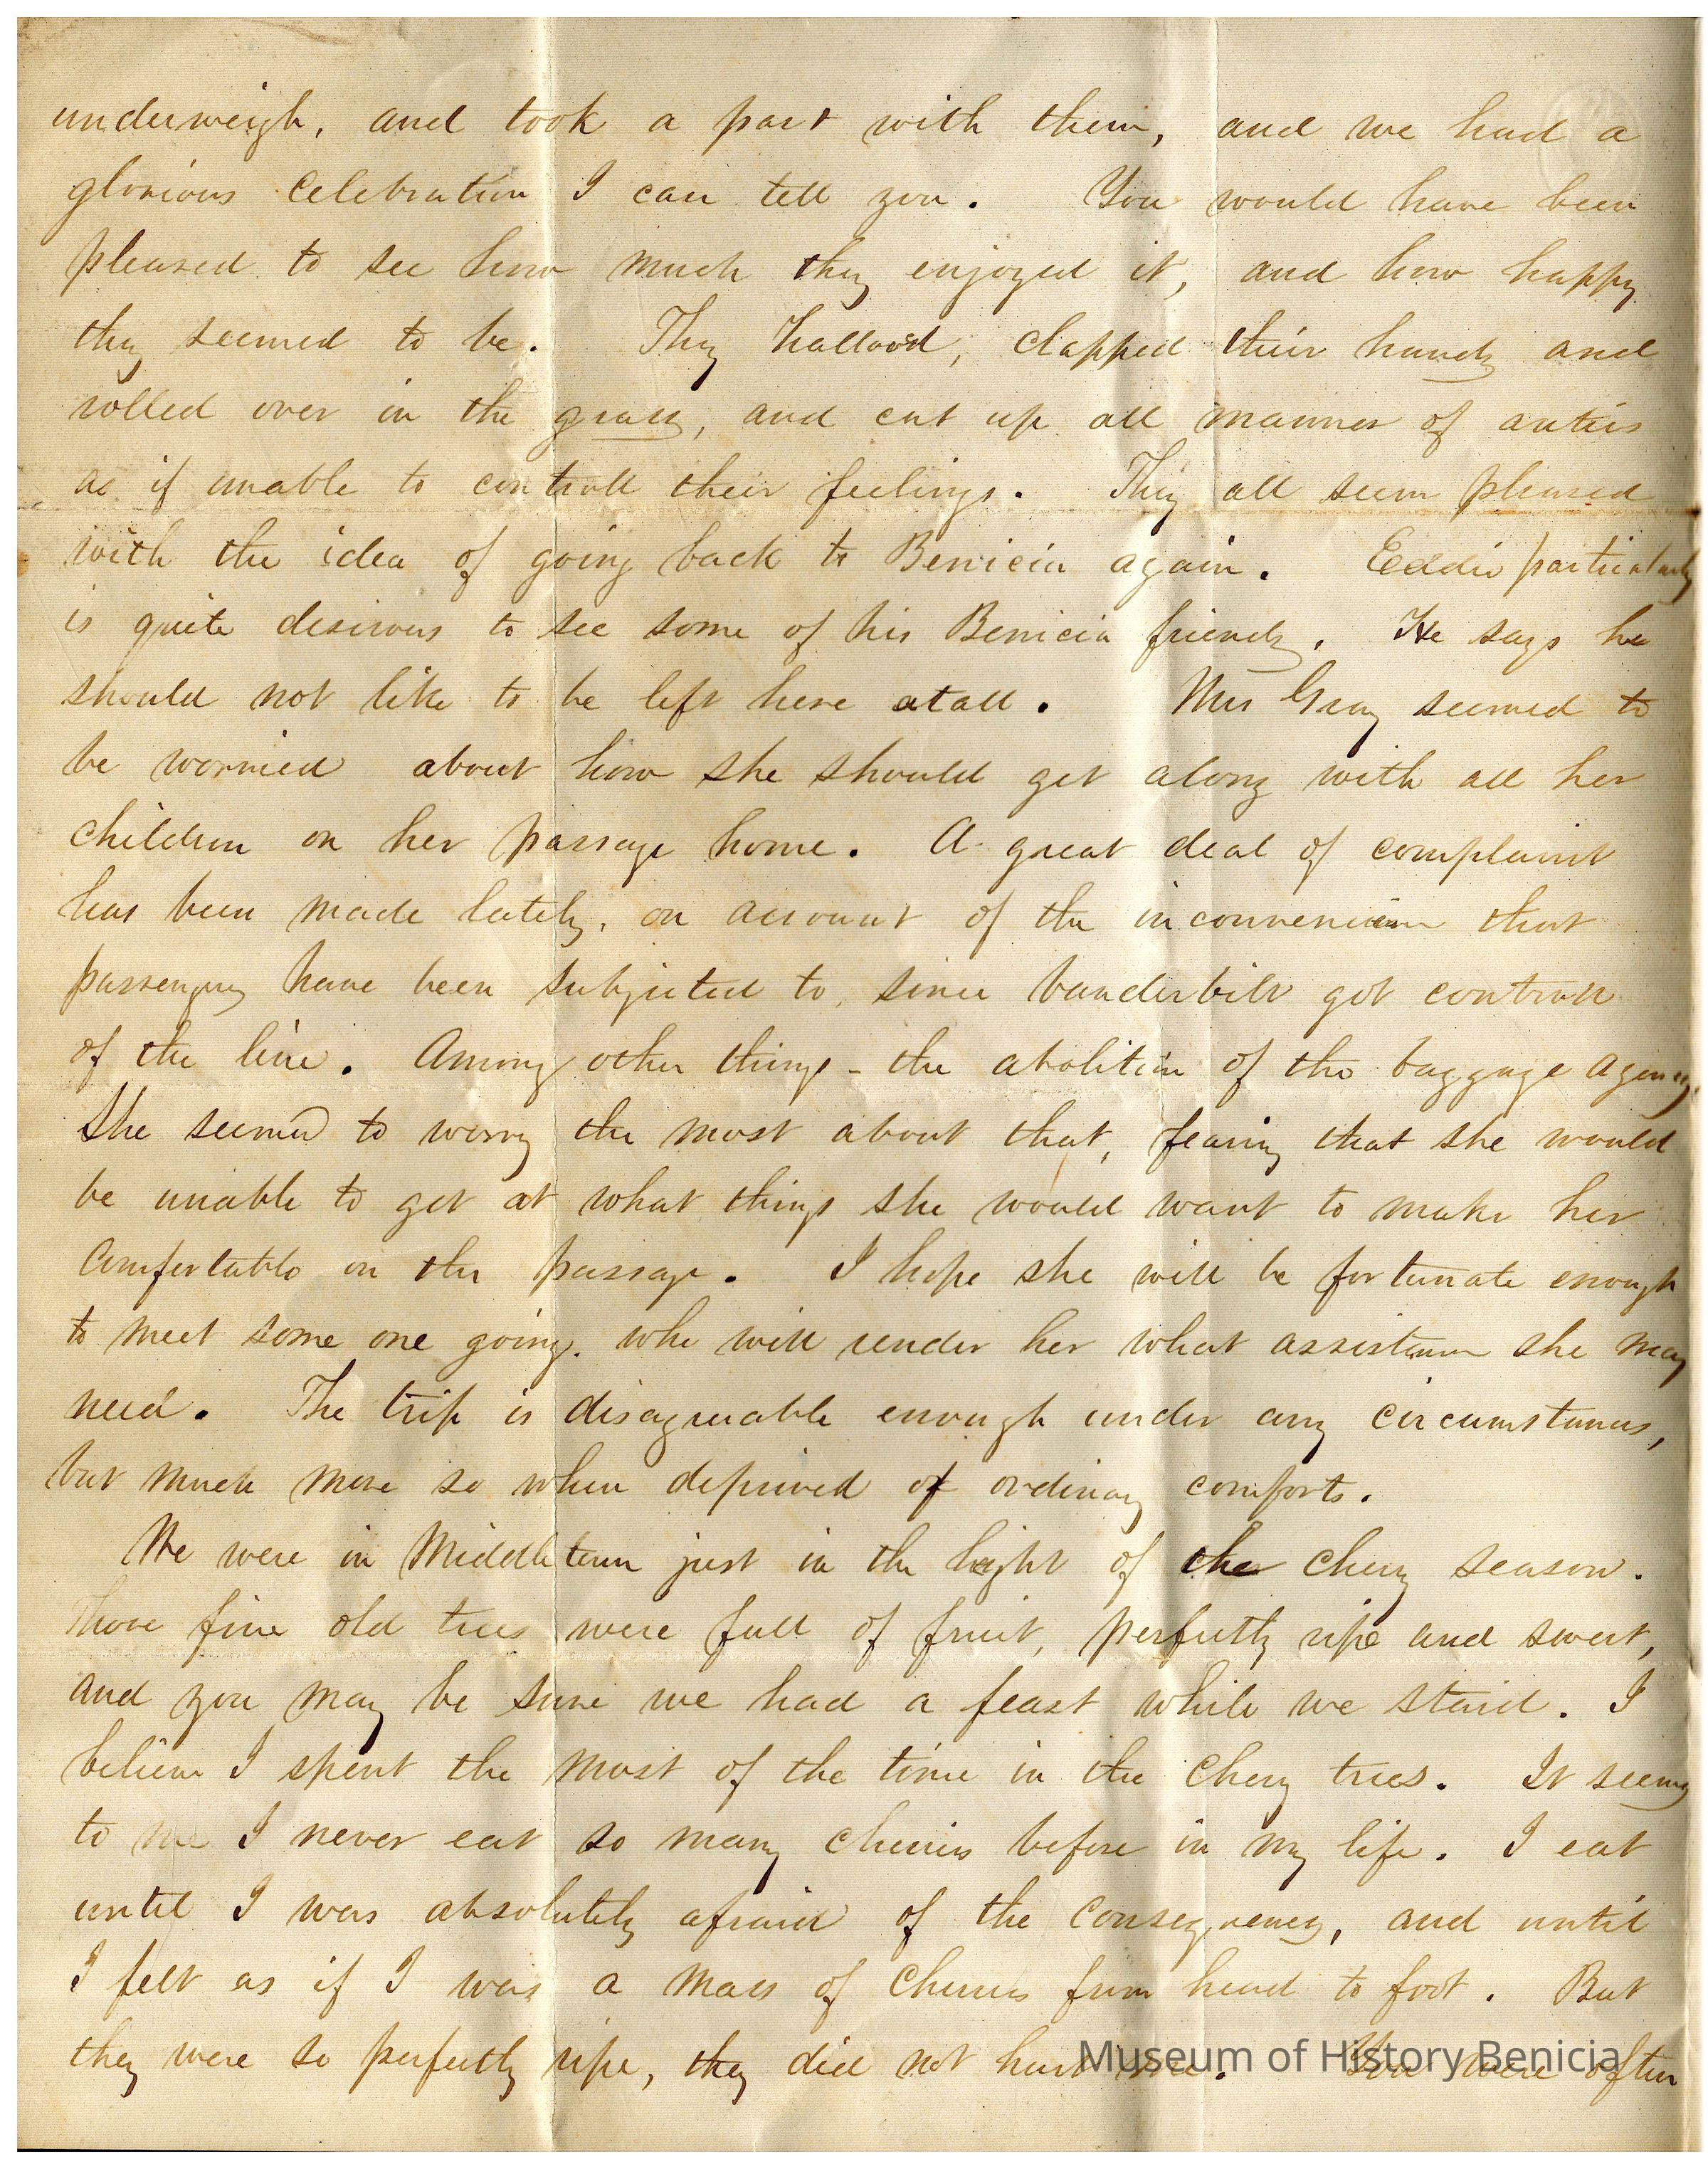 underweigh, and took a part with them, and we had a
glorious celebration I can tell you. You would have been
pleased to see how much they enjoyed it, and how happy
they seemed to be. They hallood, clapped their hands and
rolled over in the grass, and cut up all manner of antics
as if unable to controll their feelings. They all seem pleased
with the idea of going back to Benicia again. Eddie particularly
is quite desirous to see some of his Benicia friends. He says he
should not like to be left here atall. Mrs Gray seemed to
be worried about how she should get along with all her
children on her passage home. A great deal of complaint
has been made lately, on account of the inconvenience that
passengers have been subjected to, since Vanderbilt got controll
of the line. Among other things - the abolition of the baggage agency.
She seemed to worry the most about that, fearing that she would
be unable to get at what things she would want to make her
comfortable on the passage. I hope she will be fortunate enough
to meet some one going, who will render her what assistance she may
need. The trip is disagreeable enough under any circumstances,
but much more so when deprived of ordinary comforts.
We were in Middletown just in the hight of the cherry season.
Those fine old trees were full of fruit, perfectly ripe and sweet,
and you may be sure we had a feast while we staid. I
believe I spent the most of the time in the cherry trees. It seems
to me I never eat so many cherries before in my life. I eat
until I was absolutely afraid of the consequences, and until
I felt as if I was a mass of cherries from head to foot. But
they were so perfectly ripe, they did not hurt me. You were often
Museum of History Benicia